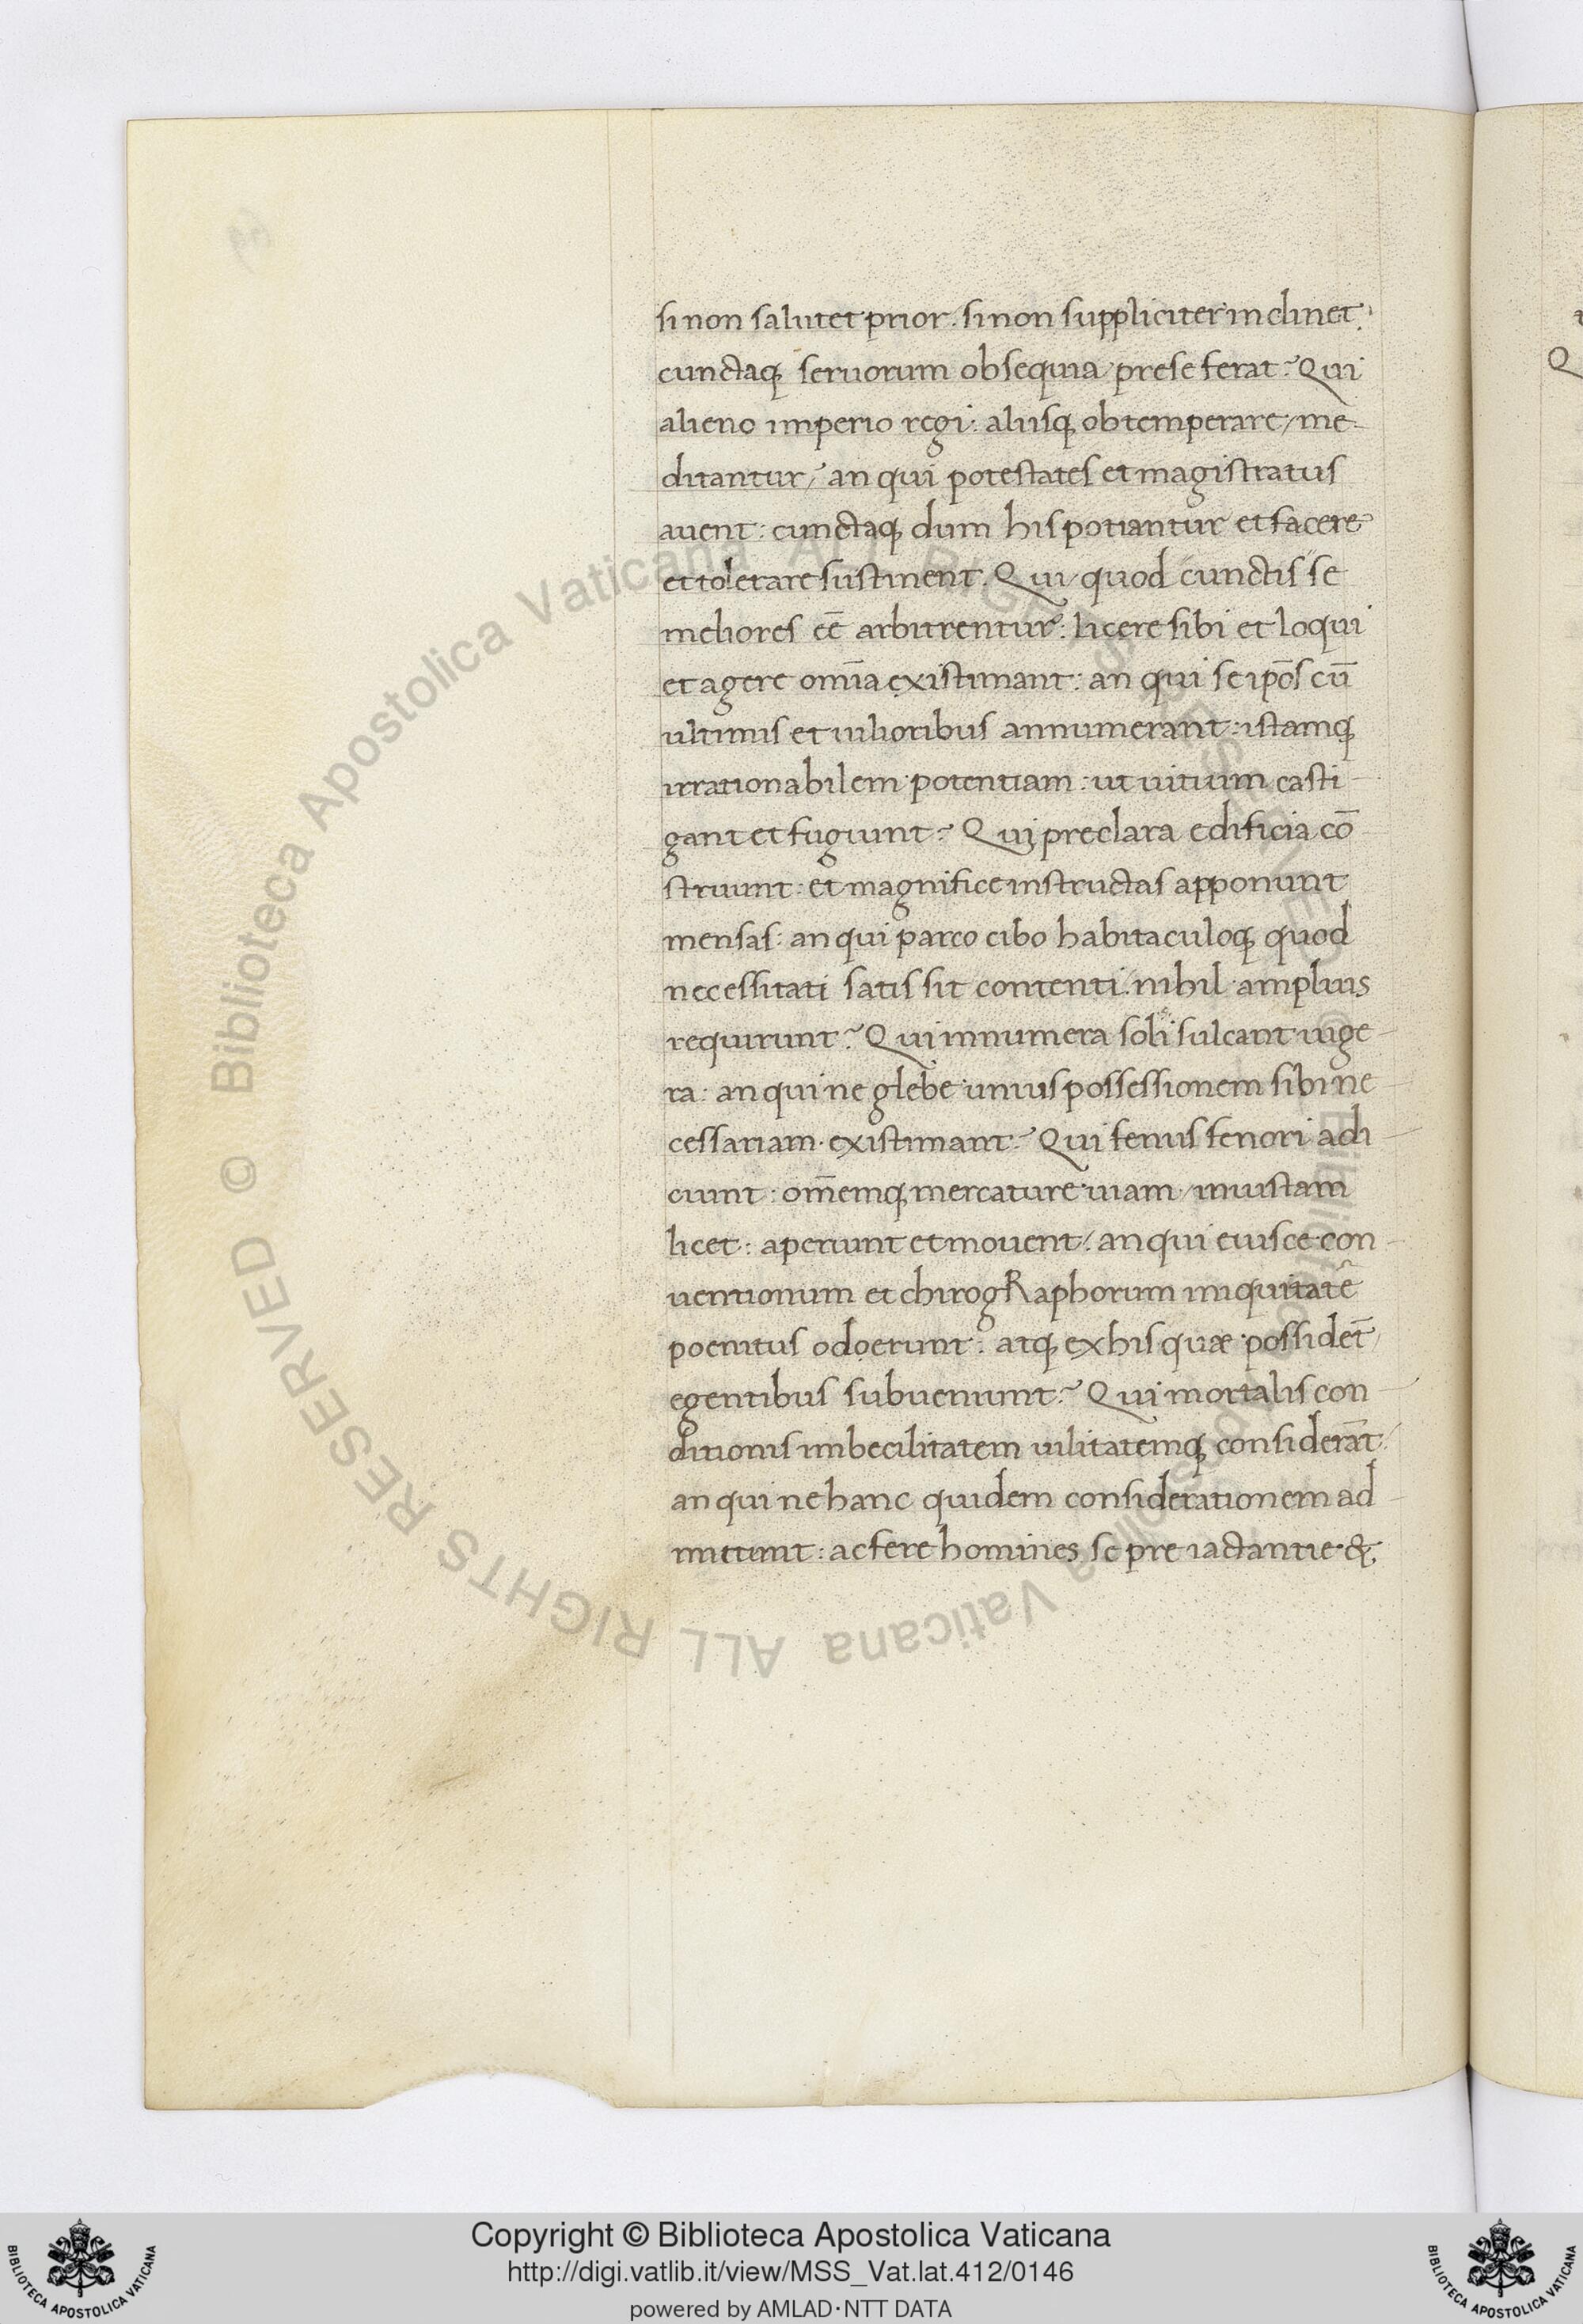 si non salutet prior. si non suppliciter inclinet.
cunctaq; seruorum obsequia prese ferat? Qui
alieno imperio regi: aliisq; obtemperare me
ditantur, an qui potestates et magistratus
auent: cunctaq; dum his potiantur et facere
et tolerare sustinent. Qui quod cunctis se
meliores eē arbitrentur: licere sibi et loqui
et agere om̄ia existimant: an qui se ip̄os cū
ultimis et uilioribus annumerant: istamq;
irrationabilem potentiam: ut uitium casti
gant et fugiunt? Qui preclara edificia cō
struunt: et magnifice instructas apponunt
mensas: an qui parco cibo habitaculoq; quod
necessitati satis sit contenti: nihil amplius
requirunt? Qui innumera soli sulcant iuge
ra: an qui ne glebe unius possessionem sibi ne
cessariam existimant? Qui fenus fenori adi
ciunt: om̄emq; mercature uiam, iniustam
licet: aperiunt et mouent: an qui eiusce con
uentionum et chirogRaphorum iniquitatē
poenitus odoerunt: atq; ex his quæ possidēt,
egentibus subueniunt? Qui mortalis con
ditionis imbecilitatem uilitatemq; considerāt:
an qui ne hanc quidem considerationem ad
mittunt: ac fere homines se pre iactantie &
Copyright © Biblioteca Apostolica Vaticana
http://digi.vatlib.it/view/MSS_Vat.lat.412/0146
powered by AMLAD·NTT DATA
BIBLIOTECA APOSTOLICA VATICANA
BIBLIOTECA APOSTOLICA VATICANA
© Biblioteca Apostolica Vaticana ALL RIGHTS RESERVED
© Biblioteca Apostolica Vaticana ALL RIGHTS RESERVED